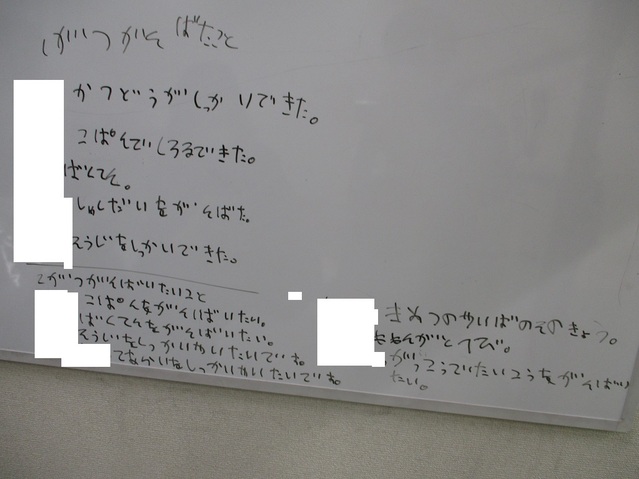 いがつがんばたこと
かつどうがしっかいできた。
こぱんでいしろるできた。
ばてそ。
しゃしだいをがんばた。
そうじをしっかいできた。
2がつがんばいたいこと
こぱんをがんばいたい。
ばくてんをがんばいたい。
そうじをしっかいやいたいでね。
てなかいをしっかいやいたいでね。
きめつのやいばのそのきょう。
がっこうでたいこうをがんばい
たい。